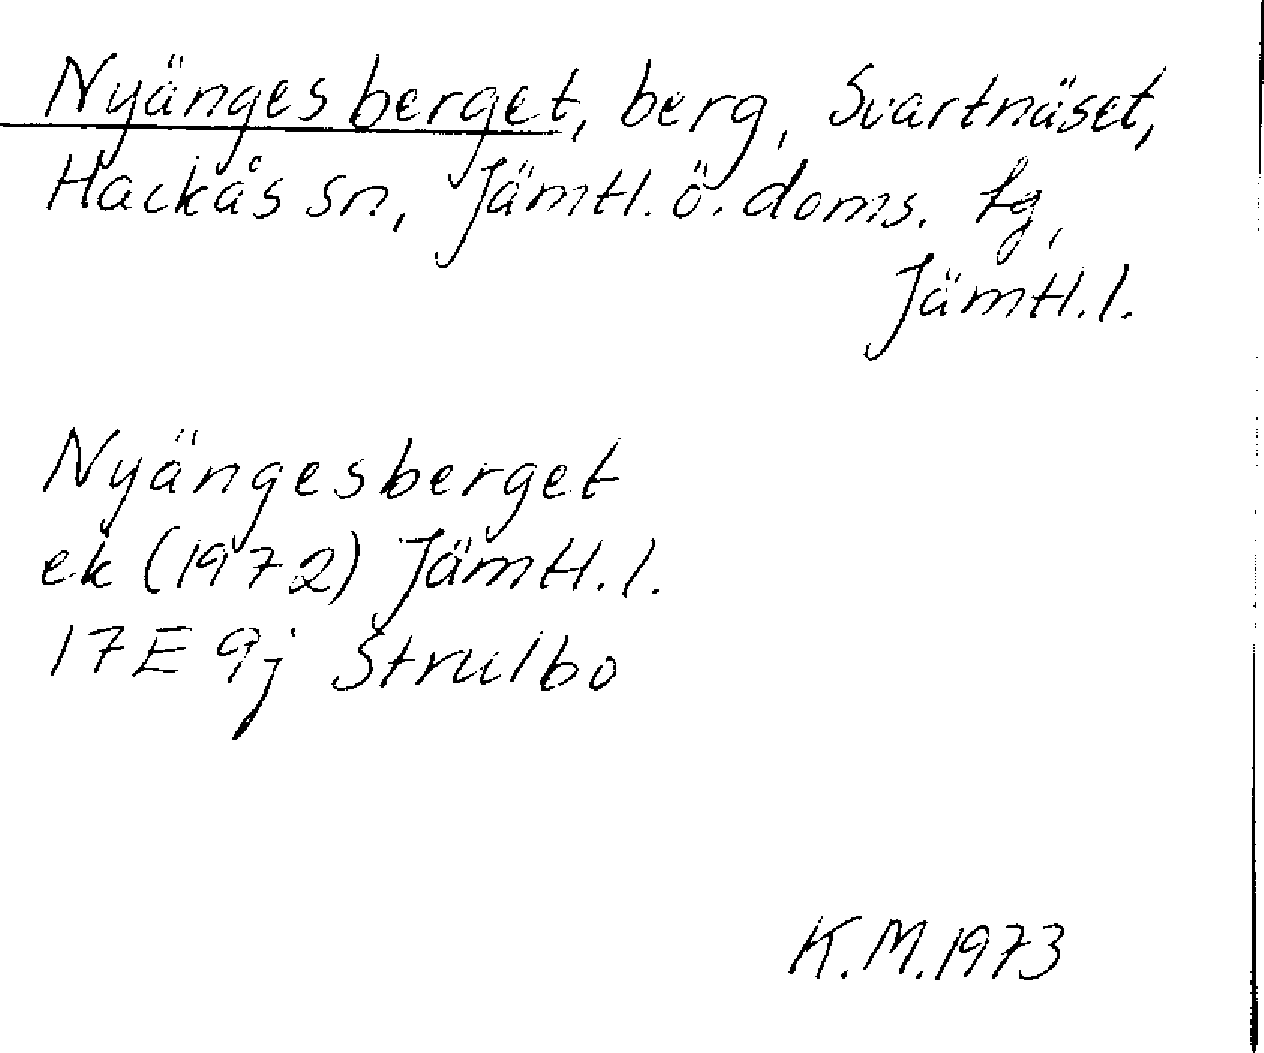 Nyängesberget, berg, Svartnäset,
Hackås sn, Jämtl. ö. doms. tg,
Jämtl. l.
Nyängesberget
ek (1972) Jämtl. l.
17E 9j Strulbo
K.M. 1973